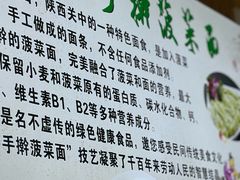 手擀菠菜面
，陕西关中的一种特色面食，是加入菠菜
手工做成的面条，不含任何食品添加剂
擀的菠菜面，完美融合了菠菜和面的营养，最大
保留小麦和菠菜原有的蛋白质、碳水化合物、钙、
、维生素B1、B2等多种营养成分
是名不虚传的绿色健康食品，邀您感受民间传统美食文化
手擀菠菜面”技艺凝聚了千百年来劳动人民的智慧结晶